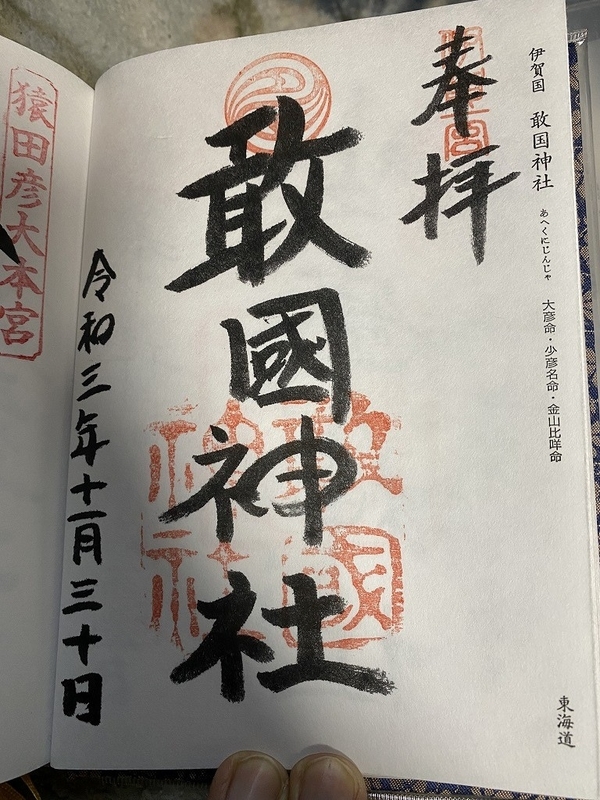 伊賀国 敢国神社 あへくにじんじゃ 大彦命・少彦名命・金山比咩命
東海道
奉拝
敢國神社
敢國神社
令和三年十一月三十日
猿田彦大本宮